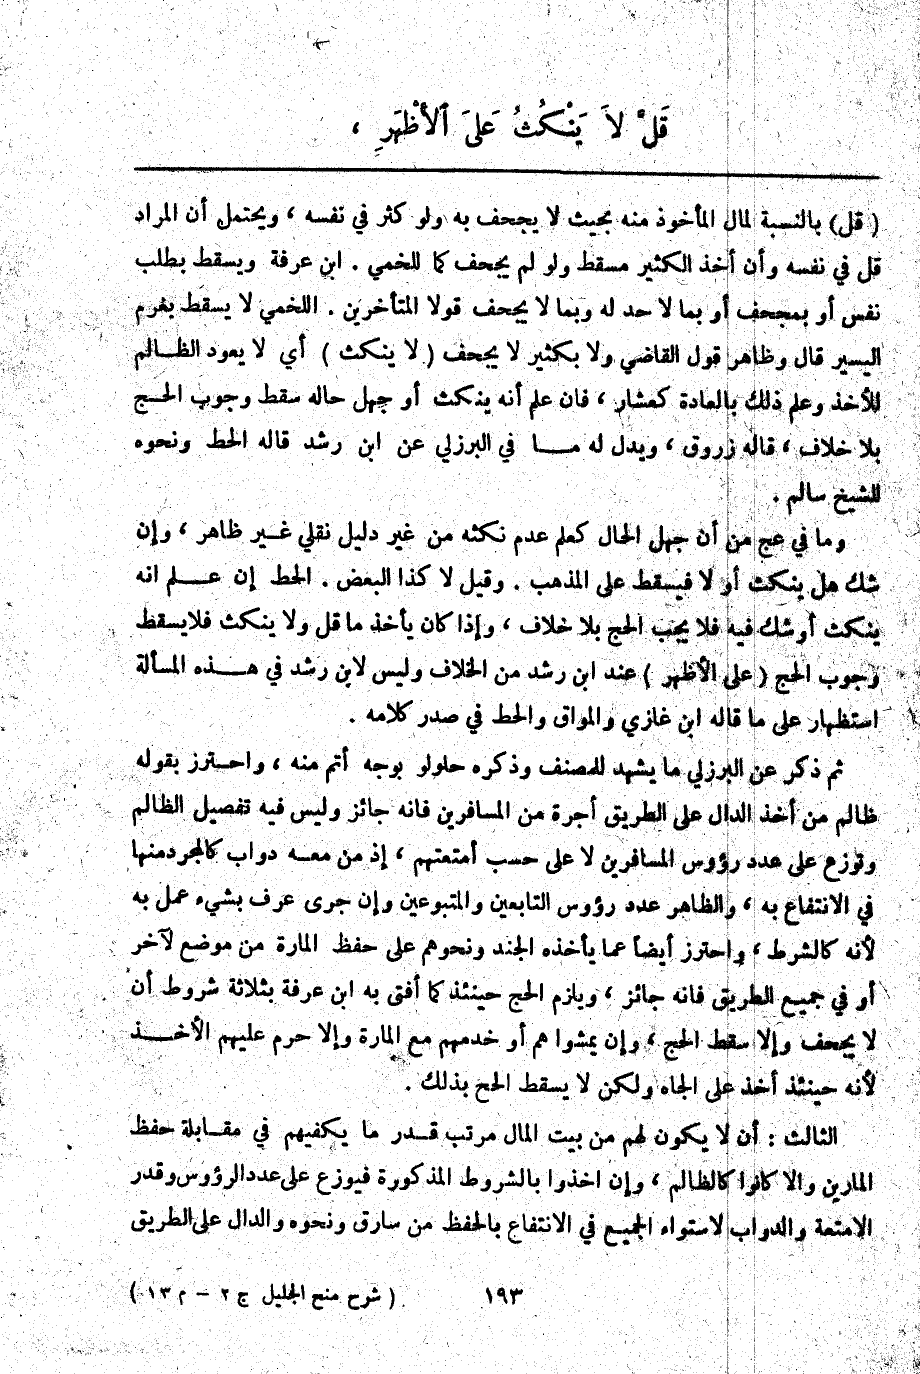 قَلَّ لاَ يَنْكُثُ عَلَى ٱلأَظْهَرِ ،
( قل ) بالنسبة لمال المأخوذ منه بحيث لا يجحف به ولو كثر في نفسه ، ويحتمل أن المراد
قل في نفسه وأن أخذ الكثير مسقط ولو لم يجحف كما للخمي . ابن عرفة ويسقط بطلب
نفس أو بمجحف أو بما لا حد له وبما لا يجحف قولا المتأخرين . اللخمي لا يسقط بغرم
اليسير قال وظاهر قول القاضي ولا بكثير لا يجحف ( لا ينكث ) أي لا يعود الظالم
للأخذ وعلم ذلك بالعادة كعشار ، فان علم أنه ينكث أو جهل حاله سقط وجوب الحج
بلا خلاف ، قاله زروق ، ويدل له مــا في البرزلي عن ابن رشد قاله الحط ونحوه
للشيخ سالم .
وما في عج من أن جهل الحال كعلم عدم نكثه من غير دليل نقلي غير ظاهر ، وإن
شك هل ينكث أو لا فيسقط على المذهب . وقيل لا كذا البعض . الحط إن علم انه
ينكث أو شك فيه فلا يجب الحج بلا خلاف ، وإذا كان يأخذ ما قل ولا ينكث فلايسقط
وجوب الحج ( على الأظهر ) عند ابن رشد من الخلاف وليس لابن رشد في هذه المسألة
استظهار على ما قاله ابن غازي والمواق والحط في صدر كلامه .
ثم ذكر عن البرزلي ما يشهد للمصنف وذكره حلولو بوجه أتم منه ، واحترز بقوله
ظالم من أخذ الدال على الطريق أجرة من المسافرين فانه جائز وليس فيه تفصيل الظالم
وتوزع على عدد رؤوس المسافرين لا على حسب أمتعتهم ، إذ من معه دواب كالمجردمنها
في الانتفاع به ، والظاهر عدد رؤوس التابعين والمتبوعين وإن جرى عرف بشيء عمل به
لأنه كالشرط ، واحترز أيضاً عما يأخذه الجند ونحوهم على حفظ المارة من موضع لآخر
أو في جميع الطريق فانه جائز ، ويلزم الحج حينئذ كما أفتى به ابن عرفة بثلاثة شروط أن
لا يجحف وإلا سقط الحج ، وإن يمشوا هم أو خدمهم مع المارة وإلا حرم عليهم الأخذ
لأنه حينئذ أخذ على الجاه ولكن لا يسقط الحج بذلك .
الثالث : أن لا يكون لهم من بيت المال مرتب قدر ما يكفيهم في مقابلة حفظ
المارين والا كانوا كالظالم ، وإن اخذوا بالشروط المذكورة فيوزع على عدد الرؤوس وقدر
الامتعة والدواب لاستواء الجميع في الانتفاع بالحفظ من سارق ونحوه والدال على الطريق
١٩٣ ( شرح منح الجليل ج ٢ – م ١٣ )